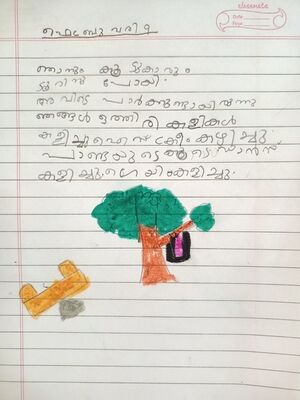 classmate
Date
Page
ഫെബ്രുവരി 9
ഞാനും കൂട്ടുകാരും
ടൂറിന് പോയി.
അവിടെ പാർക്കുണ്ടായിരുന്നു
ഞങ്ങൾ ഒത്തിരി കളികൾ
കളിച്ചു ഐസ്ക്രീം കഴിച്ചു.
പാണ്ടയുടെ ഡാൻസ്
കളിച്ചു. ഗെയിംകളിച്ചു.